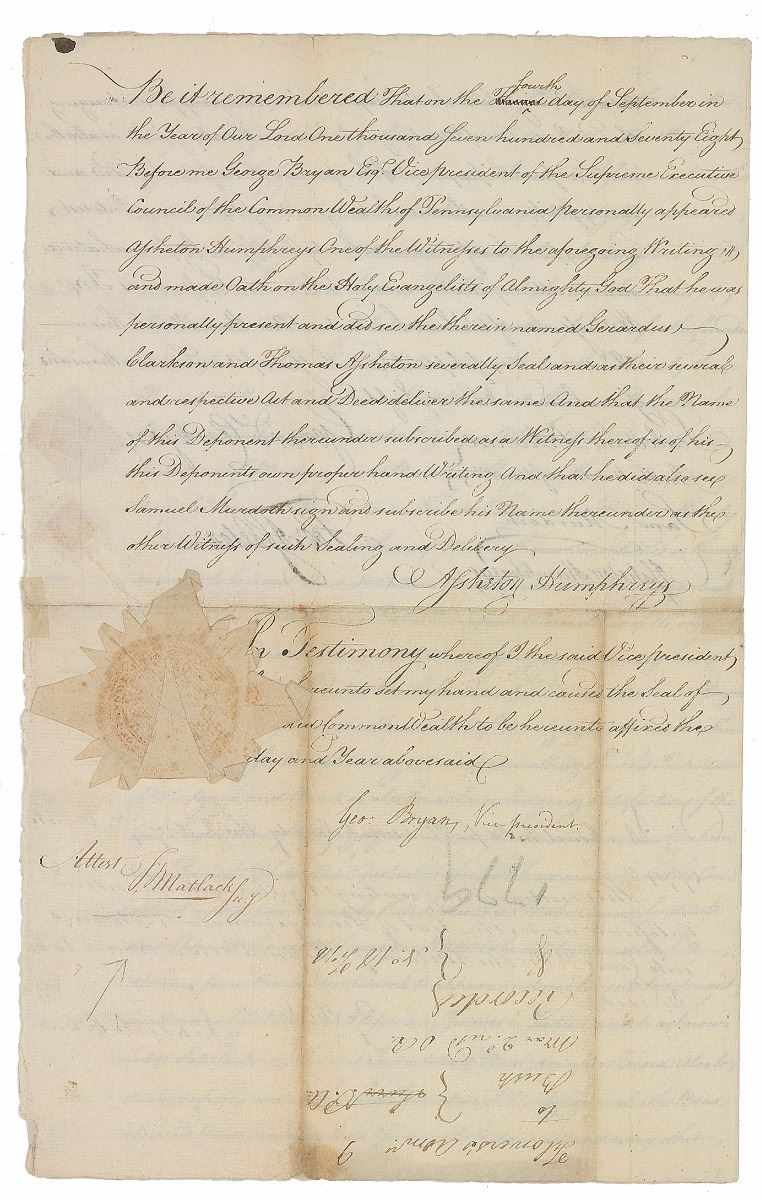 Be it remembered That on the fourth day of September in
the Year of Our Lord One thousand Seven hundred and Seventy Eight
Before me George Bryan Esqr. Vice president of the Supreme Executive
Council of the Common Wealth of Pennsylvania personally appeared
Assheton Humphreys One of the Witnesses to the aforegoing Writing
and made Oath on the Holy Evangelists of Almighty God That he was
personally present and did see the therein named Gerardus
Clarkson and Thomas Assheton severally Seal and as their several
and respective Act and Deed deliver the same And that the Name
of this Deponent thereunder subscribed as a Witness thereof is of his
this Deponents own proper hand Writing And that he did also see
Samuel Murdoth sign and subscribe his Name thereunder as the
other Witness of such Sealing and Delivery
Assheton Humphreys
In Testimony whereof I the said Vice president
hereunto set my hand and caused the Seal of
said Common Wealth to be hereunto affixed the
day and Year abovesaid
Geo: Bryan, Vice president.
Attest
T Matlack Secy
1779
Recorded
to
Bush